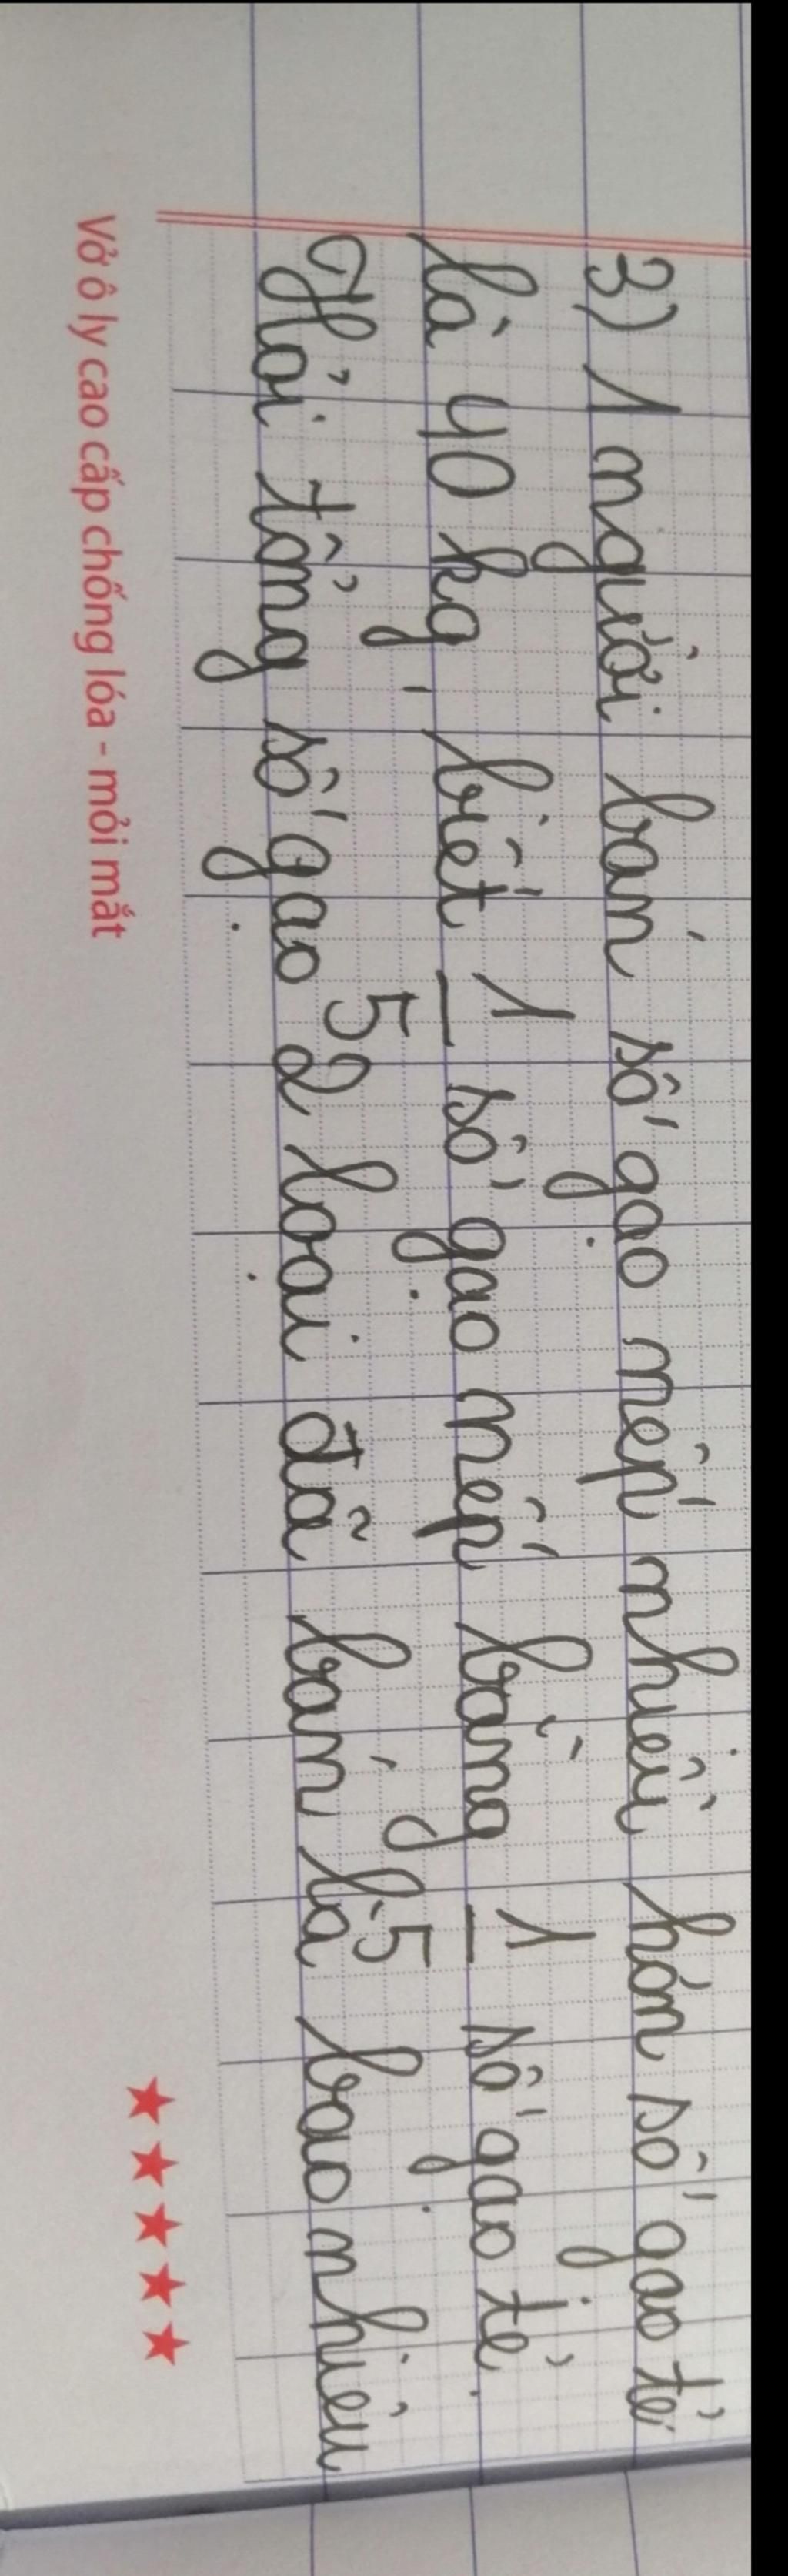 3) 1 người bán số gạo nếp nhiều hơn số gạo tẻ
là 40 kg, biết 1/5 số gạo nếp bằng 1/5 số gạo tẻ.
Hỏi tổng số gạo 2 loại đã bán là bao nhiêu
Vở ô ly cao cấp chống lóa - mỏi mắt